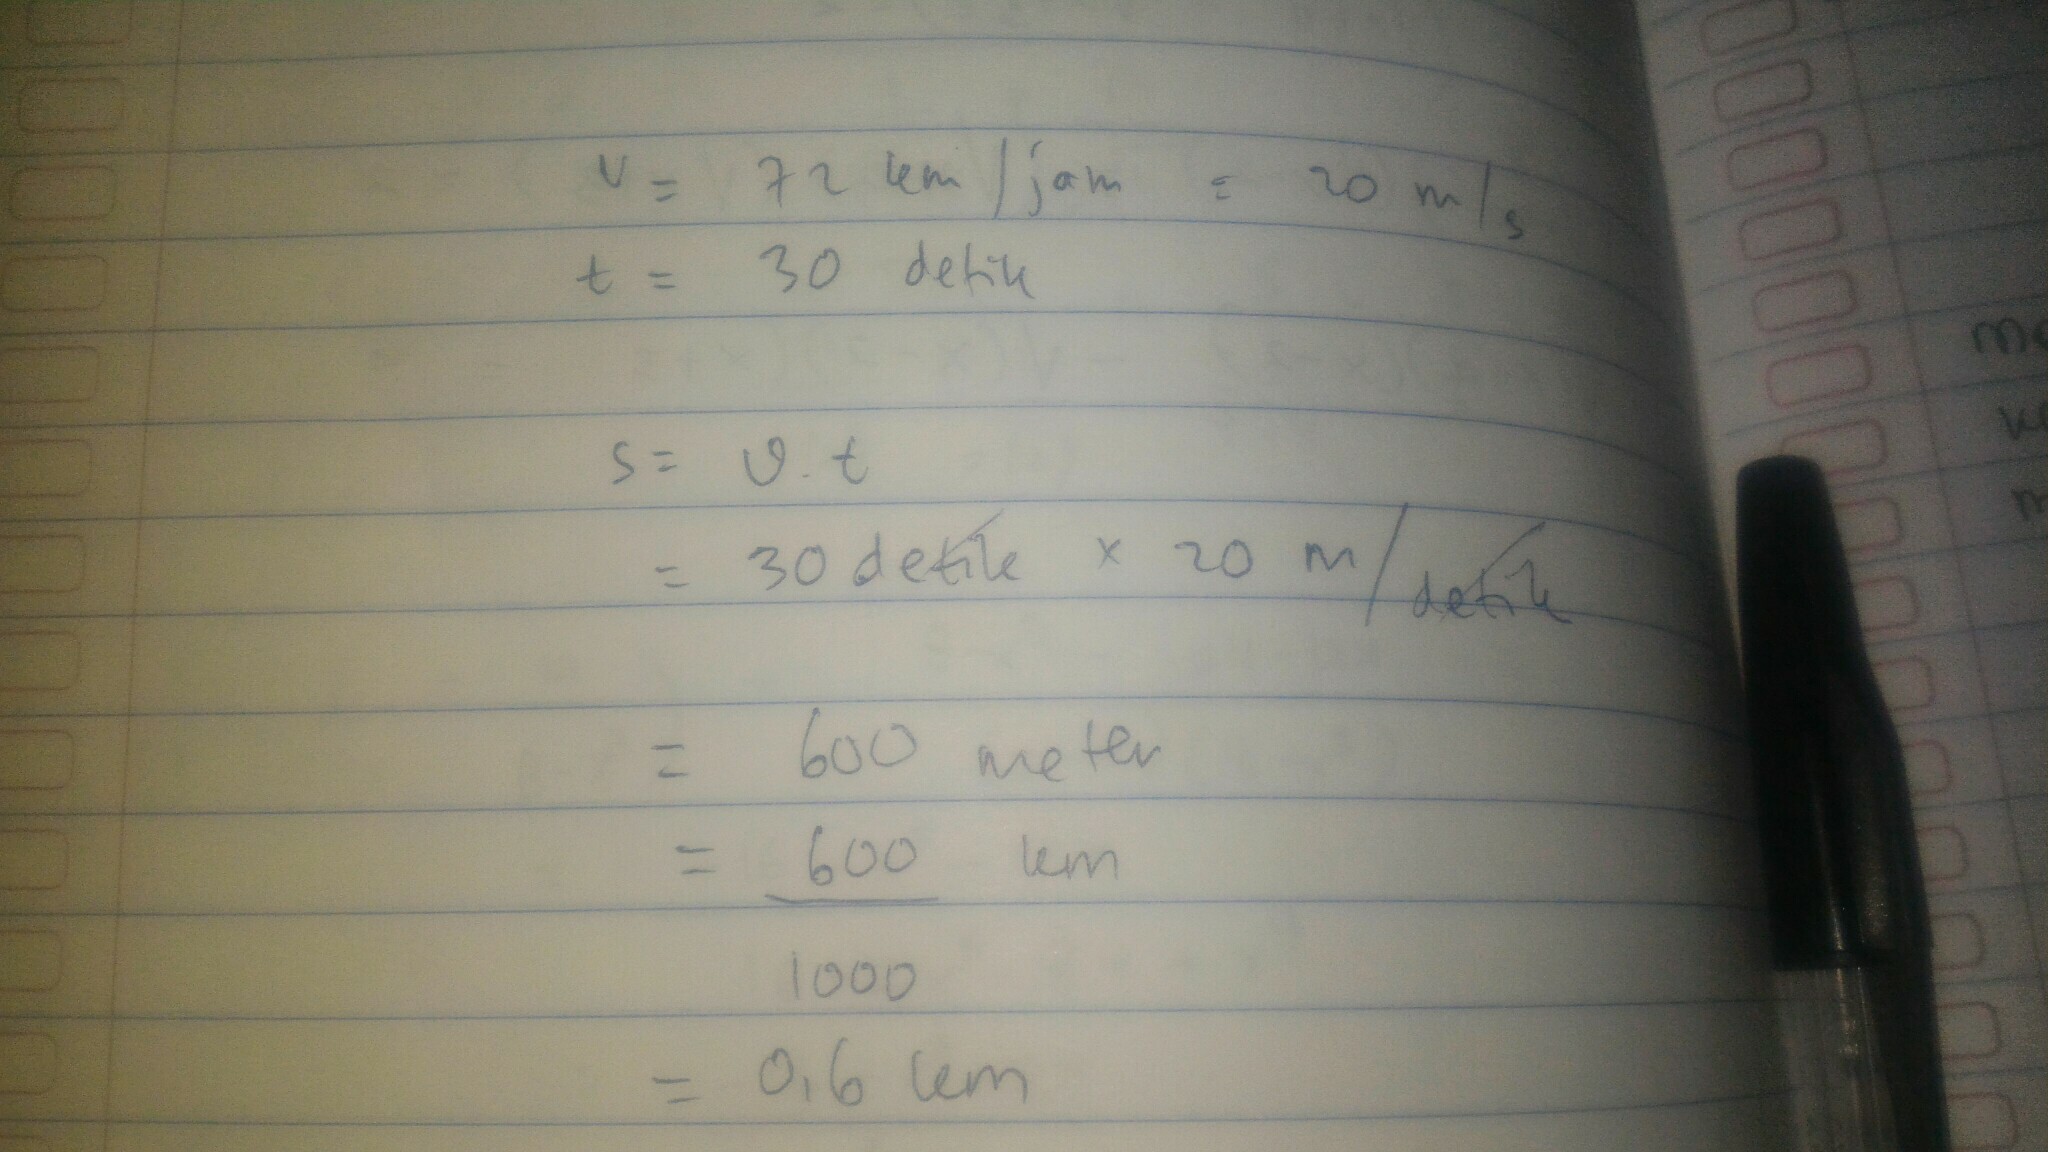 v = 72 km/jam = 20 m/s
t = 30 detik
s = v . t
= 30 detik x 20 m/detik
= 600 meter
= 600 km
1000
= 0,6 km